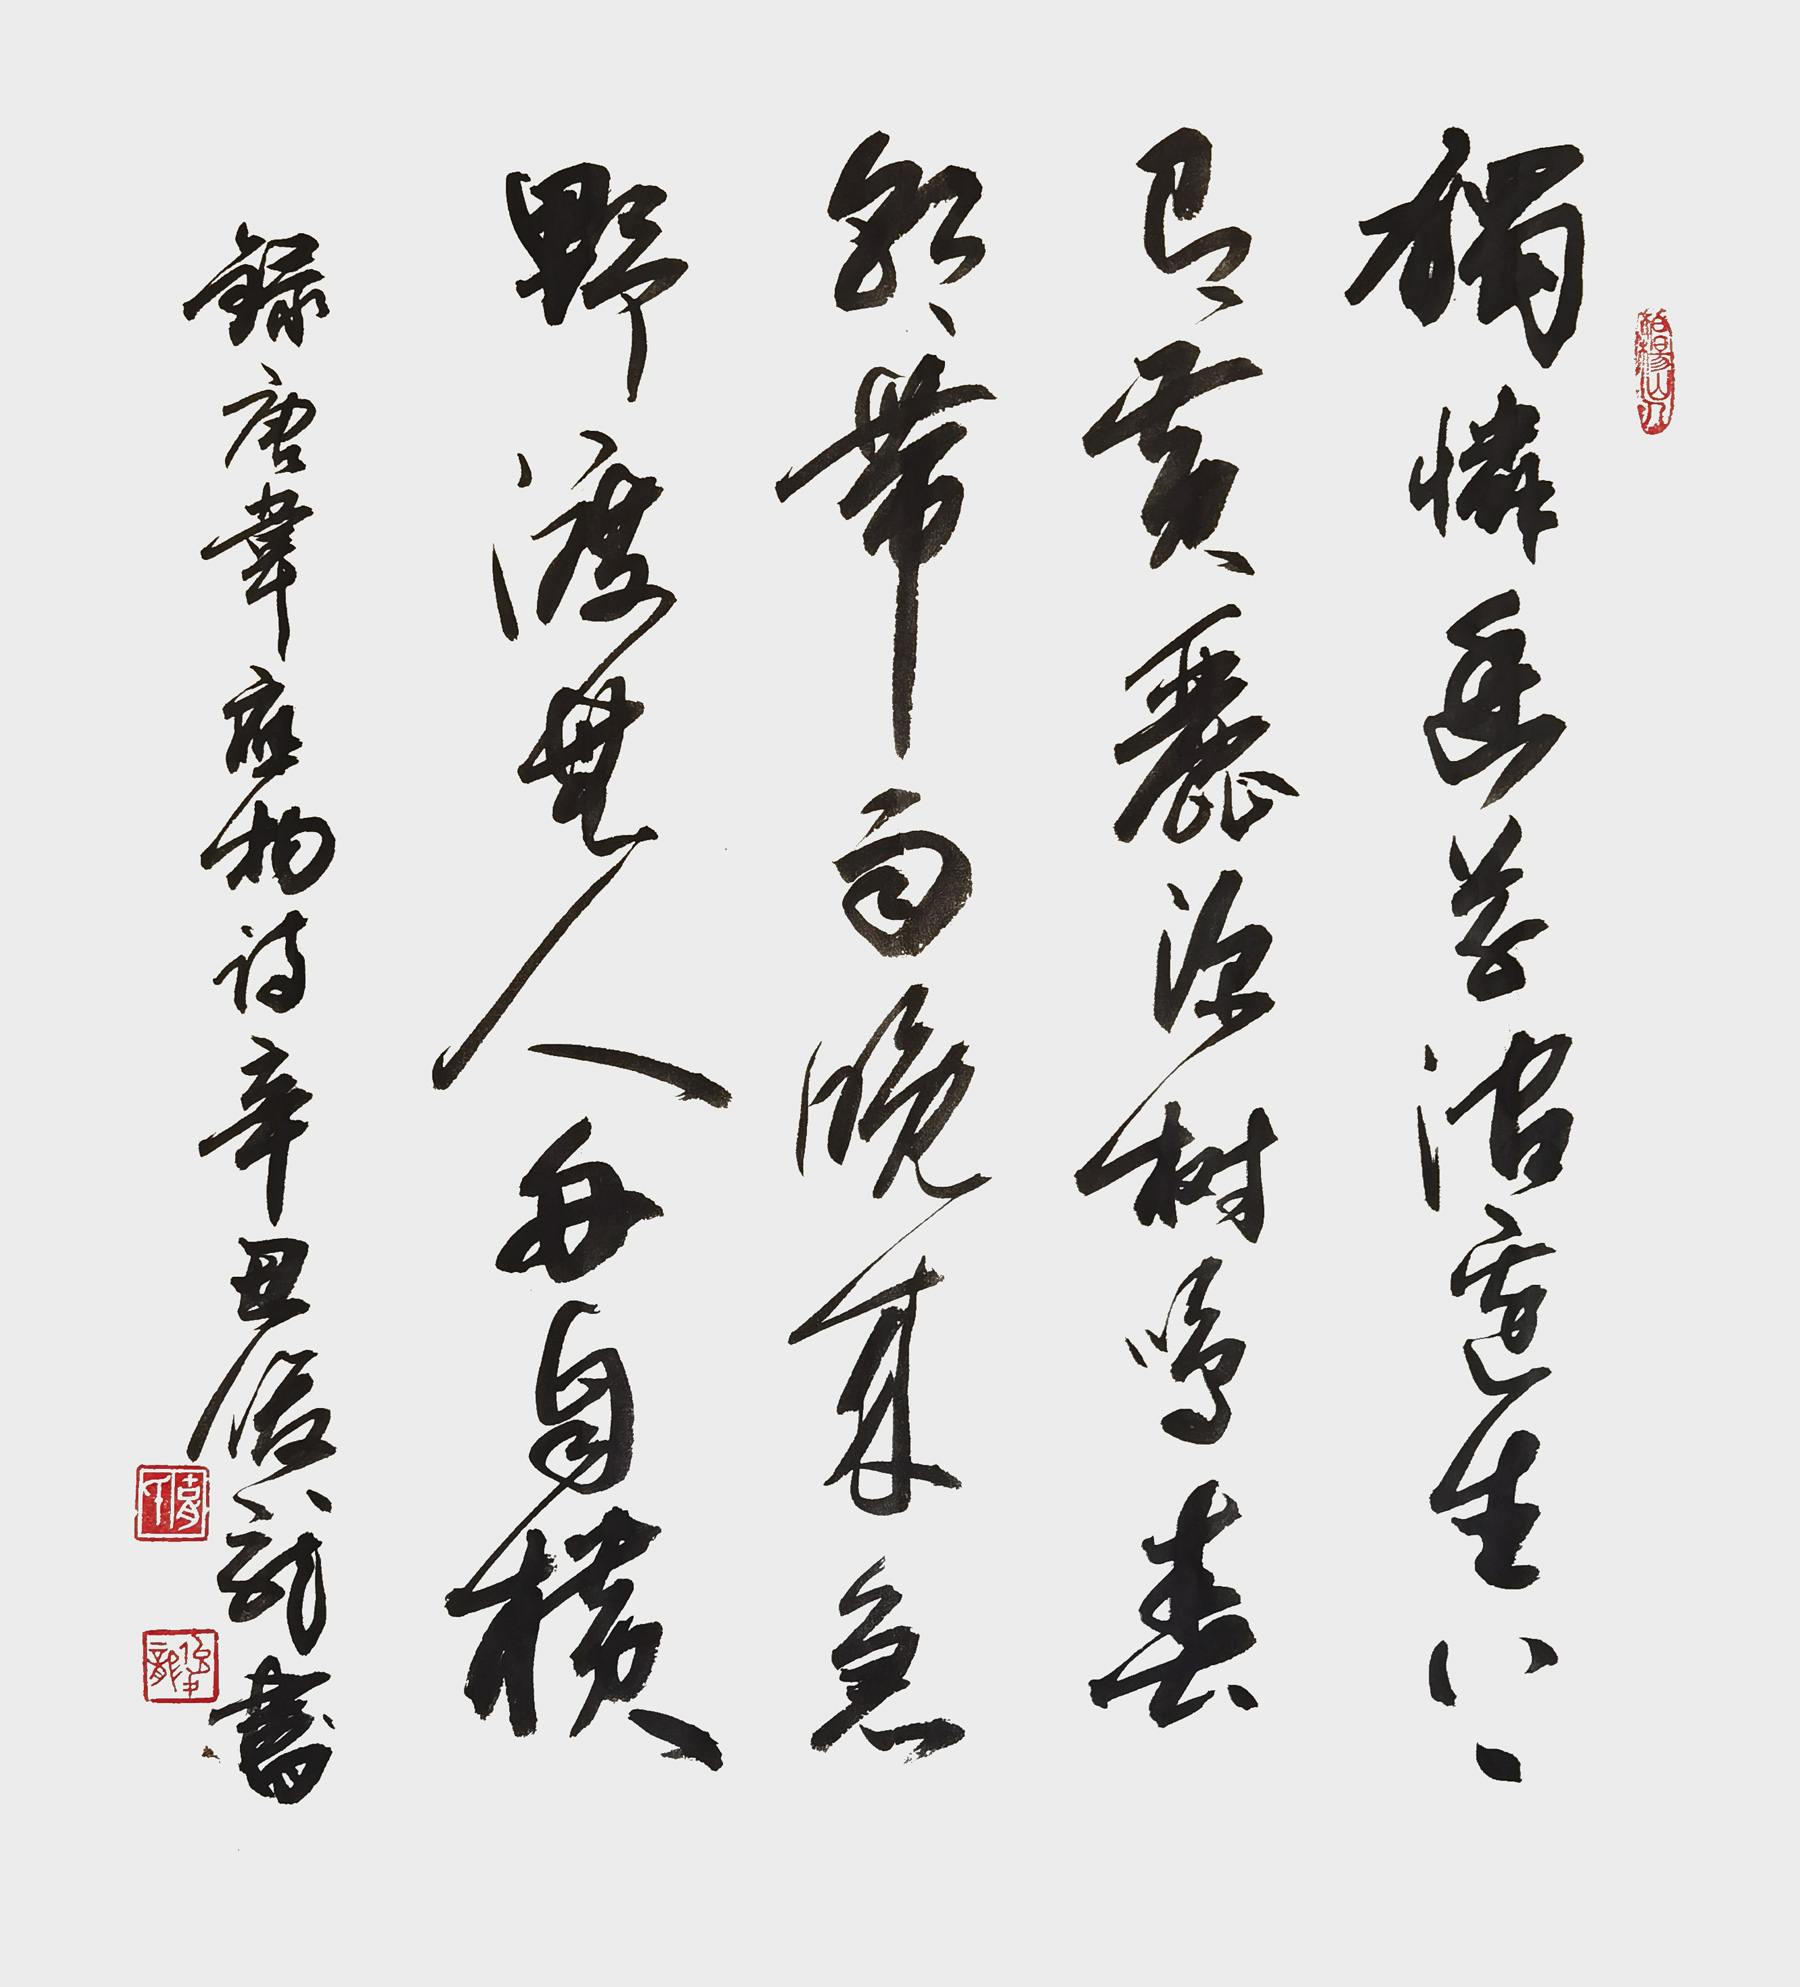 獨憐幽草澗邊生上
有黃鸝深樹鳴春
潮帶雨晚來急
野渡無人舟自橫
錄唐韋應物詩辛丑龍書